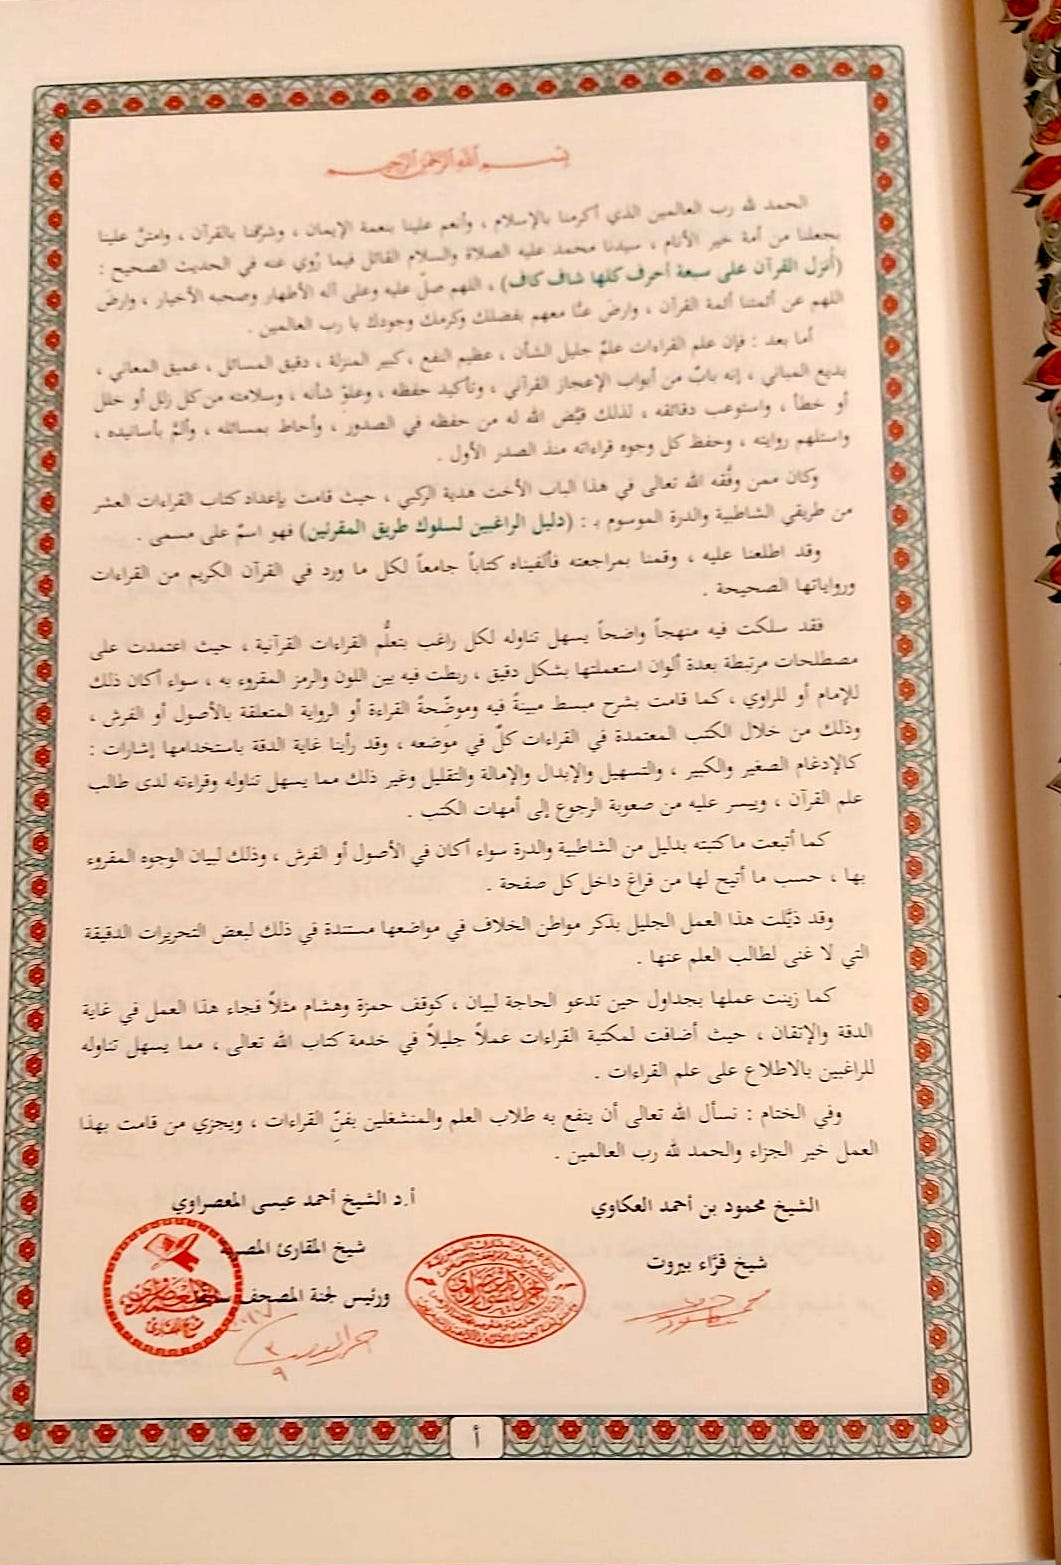 بسم الله الرحمن الرحيم
الحمد لله رب العالمين الذي أكرمنا بالإسلام ، وأنعم علينا بنعمة الإيمان ، وشرَّفنا بالقرآن ، وامتنَّ علينا
بجعلنا من أمة خير الأنام ، سيدنا محمد عليه الصلاة والسلام القائل فيما رُوي عنه في الحديث الصحيح :
(أُنزل القرآن على سبعة أحرف كلها شاف كاف) ، اللهم صلّ عليه وعلى آله الأطهار وصحبه الأخيار ، وارضَ
اللهم عن أئمتنا أئمة القرآن ، وارضَ عنَّا معهم بفضلك وكرمك وجودك يا رب العالمين .
أما بعد : فإن علم القراءات علمٌ جليل الشأن ، عظيم النفع ، كبير المنزلة ، دقيق المسائل ، عميق المعاني ،
بديع المباني ، إنه بابٌ من أبواب الإعجاز القرآني ، وتأكيد حفظه ، وعلوِّ شأنه ، وسلامته من كل زلل أو خلل
أو خطأ ، واستوعب دقائقه ، لذلك قيَّض الله له من حفظه في الصدور ، وأحاط بمسائله ، وألمَّ بأسانيده ،
واستلهم روايته ، وحفظ كل وجوه قراءاته منذ الصدر الأول .
وكان ممن وفَّقه الله تعالى في هذا الباب الأخت هدية الركبي ، حيث قامت بإعداد كتاب القراءات العشر
من طريقي الشاطبية والدرة الموسوم بـ : (دليل الراغبين لسلوك طريق المقرئين) فهو اسمٌ على مسمى .
وقد اطلعنا عليه ، وقمنا بمراجعته فألفيناه كتاباً جامعاً لكل ما ورد في القرآن الكريم من القراءات
ورواياتها الصحيحة .
فقد سلكت فيه منهجاً واضحاً يسهل تناوله لكل راغب بتعلُّم القراءات القرآنية ، حيث اعتمدت على
مصطلحات مرتبطة بعدة ألوان استعملتها بشكل دقيق ، ربطت فيه بين اللون والرمز المقروء به ، سواء أكان ذلك
للإمام أو للراوي ، كما قامت بشرح مبسط مبينةً فيه وموضِّحةً القراءة أو الرواية المتعلقة بالأصول أو الفرش ،
وذلك من خلال الكتب المعتمدة في القراءات كلّ في موضعه ، وقد رأينا غاية الدقة باستخدامها إشارات :
كالإدغام الصغير والكبير ، والتسهيل والإبدال والإمالة والتقليل وغير ذلك مما يسهل تناوله وقراءته لدى طالب
علم القرآن ، وييسر عليه من صعوبة الرجوع إلى أمهات الكتب .
كما أتبعت ما كتبته بدليل من الشاطبية والدرة سواء أكان في الأصول أو الفرش ، وذلك لبيان الوجوه المقروء
بها ، حسب ما أتيح لها من فراغ داخل كل صفحة .
وقد ذيَّلت هذا العمل الجليل بذكر مواطن الخلاف في مواضعها مستندة في ذلك لبعض التحريرات الدقيقة
التي لا غنى لطالب العلم عنها .
كما زينت عملها بجداول حين تدعو الحاجة لبيان ، كوقف حمزة وهشام مثلاً فجاء هذا العمل في غاية
الدقة والإتقان ، حيث أضافت لمكتبة القراءات عملاً جليلاً في خدمة كتاب الله تعالى ، مما يسهل تناوله
للراغبين بالاطلاع على علم القراءات .
وفي الختام : نسأل الله تعالى أن ينفع به طلاب العلم والمنشغلين بفنِّ القراءات ، ويجزي من قامت بهذا
العمل خير الجزاء والحمد لله رب العالمين .
الشيخ محمود بن أحمد العكاوي
شيخ قرَّاء بيروت
أ.د الشيخ أحمد عيسى المعصراوي
شيخ المقارئ المصرية
ورئيس لجنة المصحف سابقاً
أ